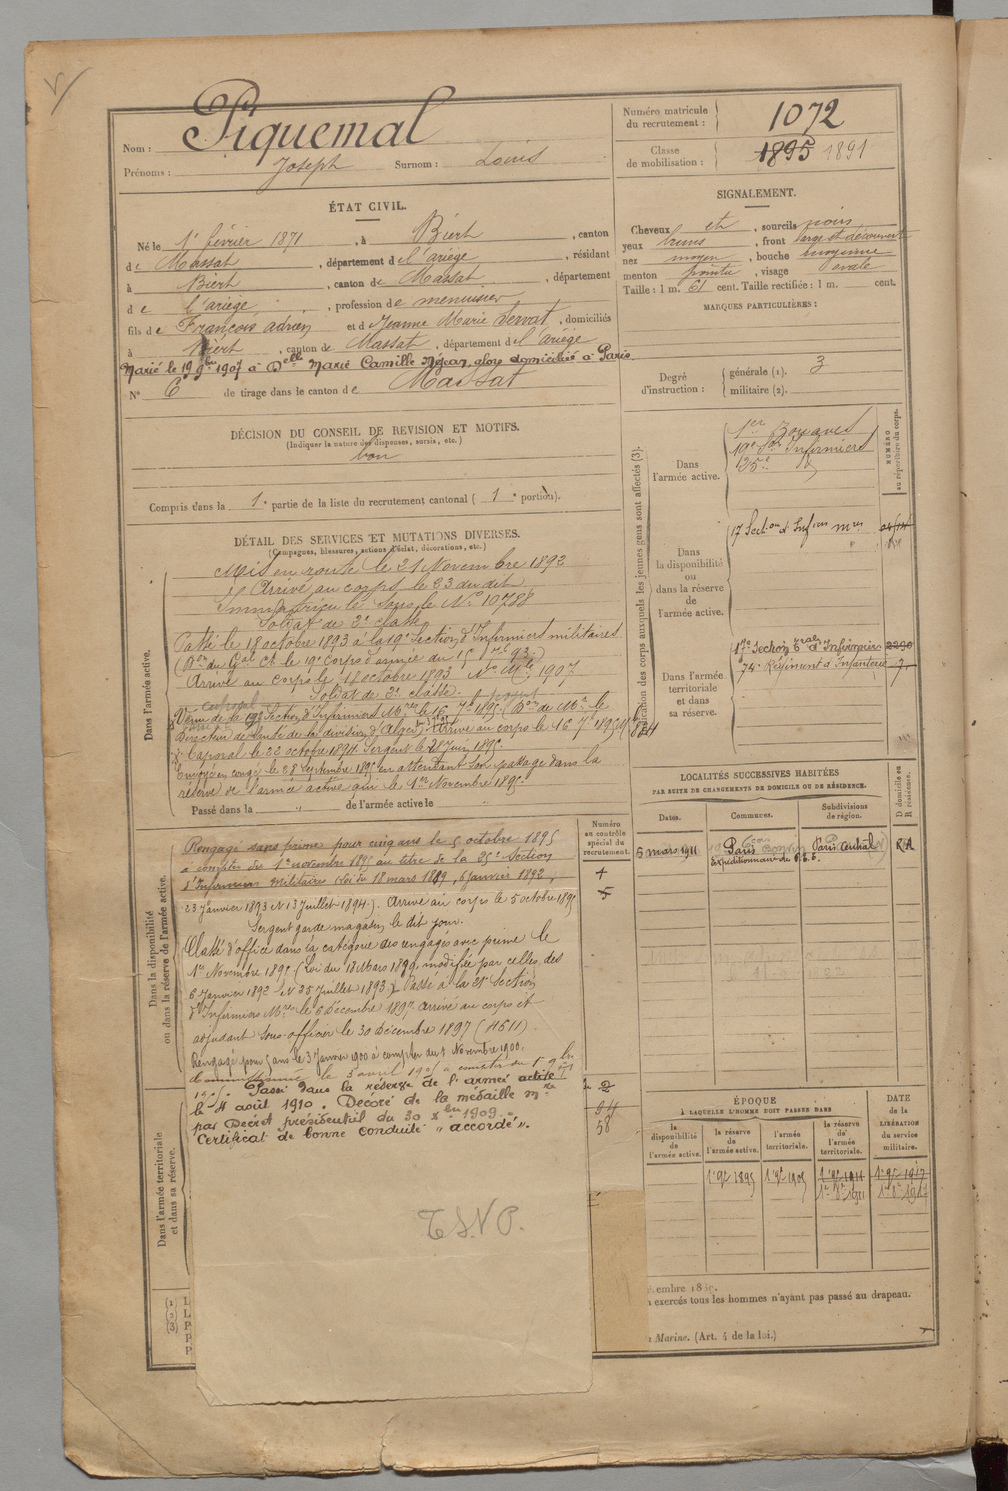 Nom : Piquemal
Prénoms : Joseph Surnom : Louis
Numéro matricule du recrutement : 1072
Classe de mobilisation : 1895 1891
ÉTAT CIVIL.
Né le 1er février 1871, à Biert, canton
de Massat, département de l'ariège, résidant
à Biert, canton de Massat, département
de l'ariège, profession de menuisier
fils de François adrien et de Jeanne Marie Servat, domiciliés
à Biert, canton de Massat, département de l'ariège
Marié le 19 9bre 1907 à Delle Marie Camille Méjean, alors domiciliée à Paris.
No 6 de tirage dans le canton de Massat
SIGNALEMENT.
Cheveux et, sourcils noirs
yeux bruns, front large et découvert
nez moyen, bouche moyenne
menton pointu, visage ovale
Taille : 1 m. 61 cent. Taille rectifiée : 1 m. cent.
MARQUES PARTICULIÈRES :
Degré d'instruction : générale (1). 3
militaire (2).
DÉCISION DU CONSEIL DE REVISION ET MOTIFS.
(Indiquer la nature des dispenses, sursis, etc.)
bon
Compris dans la 1e partie de la liste du recrutement cantonal (1e portion).
DÉTAIL DES SERVICES ET MUTATIONS DIVERSES.
(Campagnes, blessures, actions d'éclat, décorations, etc.)
Dans l'armée active.
Mis en route le 21 Novembre 1892
Arrivé au corps le 23 du dit
Immatriculé sous le No 10788
Soldat de 2e classe
Passé le 18 octobre 1893 à la 19e Section d'Infirmiers militaires
(Don du Gal Ct le 19e Corps d'armée du 15 7bre 93.)
Arrivé au corps le 18 octobre 1893 No Mle 1907
Soldat de 2e classe.
Venu de la 19e Section d'Infirmiers Mres le 16 7bre 1895. (Don de Mr le
Directeur de Santé de la division d'Alger) Arrivé au corps le 16 7bre 1895
Caporal le 22 octobre 1894 Sergent le 21 juin 1895.
Envoyé en congé le 28 Septembre 1895 en attendant son passage dans la
réserve de l'armée active qui le 1er Novembre 1895.
Passé dans la " de l'armée active le "
Dans la disponibilité ou dans la réserve de l'armée active.
Rengagé sans prime pour cinq ans le 5 octobre 1895
à compter du 1er novembre 1895 au titre de la 25e Section
d'Infirmiers Militaire (Loi du 18 mars 1889, 6 janvier 1892,
23 Janvier 1893 et 13 Juillet 1894). Arrivé au corps le 5 octobre 1895
Sergent garde magasin le dit jour.
Classé d'office dans la catégorie des engagés avec prime le
1er Novembre 1895 (Loi du 18 Mars 1889, modifiée par celles des
6 Janvier 1892 et 25 Juillet 1893.) Passé à la 21e Section
d'Infirmiers Mres le 6 Décembre 1897. Arrivé au corps et
adjudant sous-officier le 30 Décembre 1897 (H611).
Rengagé pour 5 ans le 3 Janvier 1900 à compter du 1 Novembre 1900.
Commissionné le 3 avril 1905 à compter du 1er 9bre
1905. Passé dans la réserve de l'armée active
le 4 août 1910. Décoré de la médaille mre
par Décret présidentiel du 30 Xbre 1909.
Certificat de bonne conduite " accordé ".
Dans l'armée territoriale et dans sa réserve.
T.S.V.P.
Numéro au contrôle spécial du recrutement.
2
58
Indication des corps auxquels les jeunes gens sont affectés (3).
NUMÉRO au répertoire du corps.
Dans l'armée active.
1er Zouaves
19e Son Infirmiers
25e
Dans la disponibilité ou dans la réserve de l'armée active.
17 Section d'Infiers mres
Dans l'armée territoriale et dans sa réserve.
17e Section Territle d'Infirmiers 2290
74e Régiment d'Infanterie
LOCALITÉS SUCCESSIVES HABITÉES
PAR SUITE DE CHANGEMENTS DE DOMICILE OU DE RÉSIDENCE.
Dates. Communes. Subdivisions de région. D domicile ou R résidence.
5 mars 1911 Paris Paris Central R
Expéditionnaire
ÉPOQUE
À LAQUELLE L'HOMME DOIT PASSER DANS
DATE de la LIBÉRATION du service militaire.
la disponibilité de l'armée active. la réserve de l'armée active. l'armée territoriale. la réserve de l'armée territoriale.
1er 9bre 1895 1er 9bre 1905 1er 9bre 1911 1er 9bre 1917
embre 18
n exercés tous les hommes n'ayant pas passé au drapeau.
Marine. (Art. 4 de la loi.)
(1)
(2)
(3)